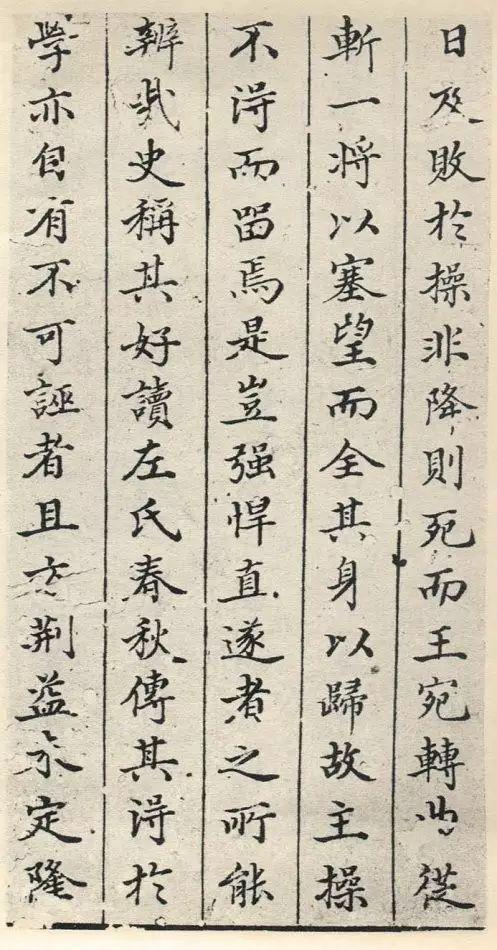 日及敗於操非降則死而王宛轉少從
斬一将以塞望而全其身以歸故主操
不得而留焉是豈强悍直遂者之所能
辨哉史稱其好讀左氏春秋傳其得於
學亦自有不可誣者且方荆益未定隆